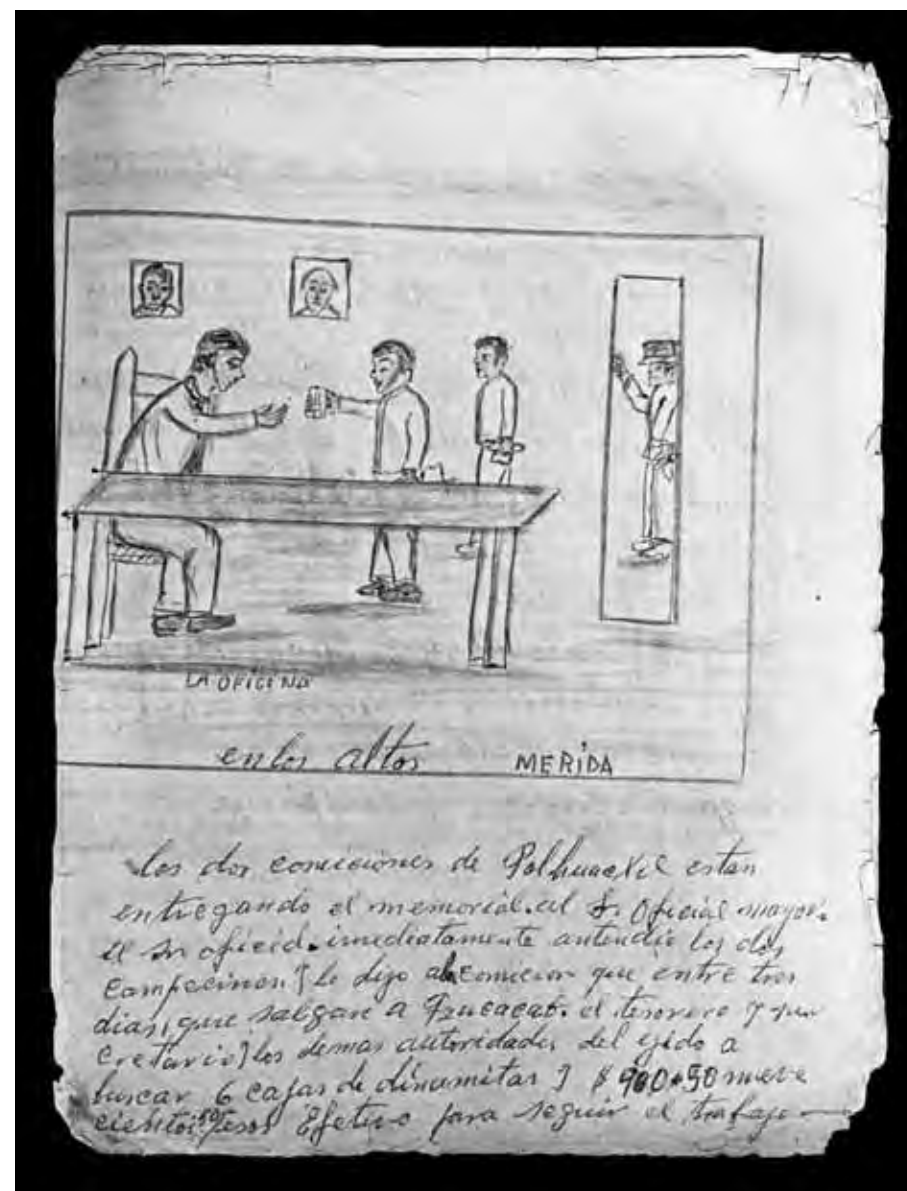 71
LA OFICINA
en los altos MERIDA
los dos comiciones de Polhuacxil estan
entregando el memorial. al Sr. Oficial mayor.
El Sr oficial. imediatamente antendio los dos
campecinos. y le dijo al comicion que entre tres
dias, que salgan a el tesorero y
cretario y los demas autoridades del ejido a
buscar 6 cajas de dinamitas y $ 900.50 nueve
cientos pesos Efetivo para seguir el trabajo